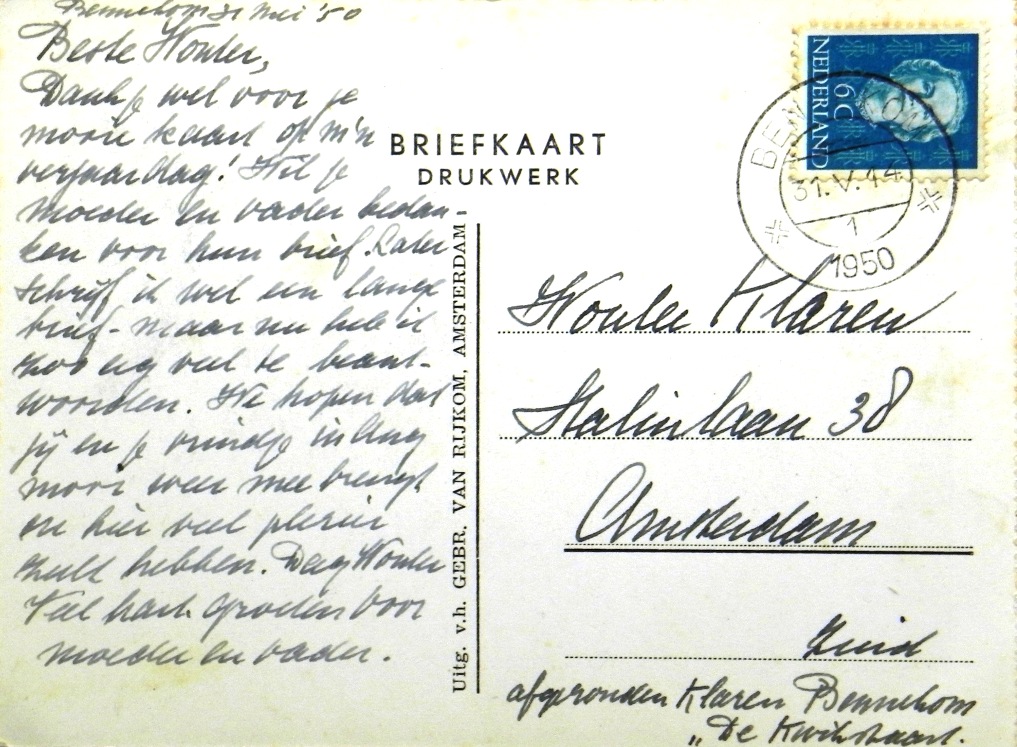 Bennekom 31 Mei '50
Beste Wouter,
Dank je wel voor je
mooie kaart op m'n
verjaardag! Wil je
moeder en vader bedan-
ken voor hun brief. Later
schrijf ik wel een lange
brief - maar nu heb ik
zoo erg veel te beant-
woorden. We hopen dat
jij en je vriendje
mooi weer mee brengt
en hier veel plezier
zult hebben. Dag Wouter
Veel hart. groeten voor
moeder en vader.
BRIEFKAART
DRUKWERK
Uitg. v.h. GEBR. VAN RIJKOM, AMSTERDAM
NEDERLAND
6 C
BENNEKOM
31.V.14
1
1950
Wouter Klaren
Stalinlaan 38
Amsterdam
Zuid
Klaren Bennekom
„De Kwikstaart.